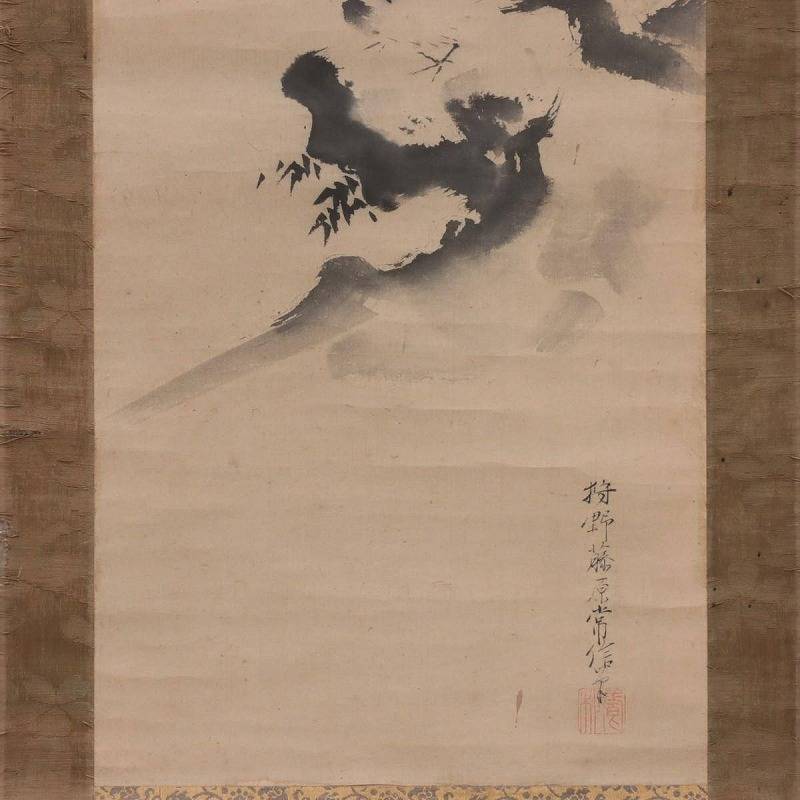 狩野藤原常信筆